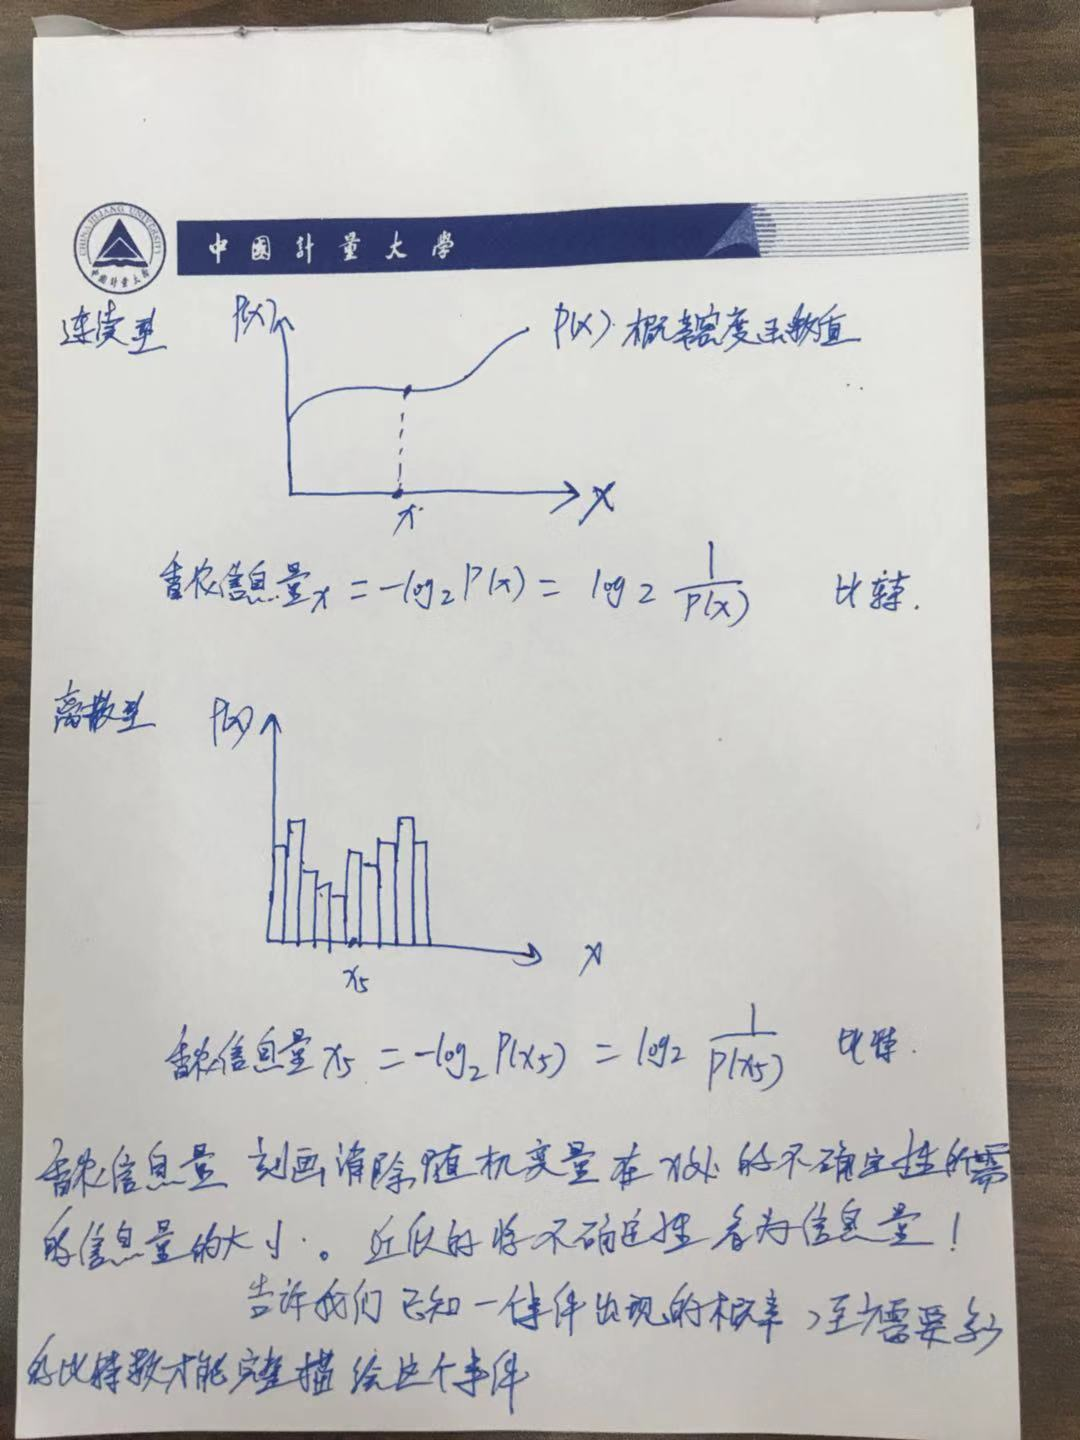 CHINA JILIANG UNIVERSITY
中国计量大学
中國計量大學
连续型 P(x) P(x) 概率密度函数值
x X
香农信息量x = -log₂P(x) = log 2 1/P(x) 比特.
离散型 P(x)
x₅ x
香农信息量 x₅ = -log₂ P(x₅) = log₂ 1/P(x₅) 比特.
香农信息量 刻画消除随机变量在x处的不确定性所需
的信息量的大小。近似的将不确定性看为信息量!
告诉我们已知一件事件出现的概率,至少需要多少
的比特数才能完整描绘这个事件